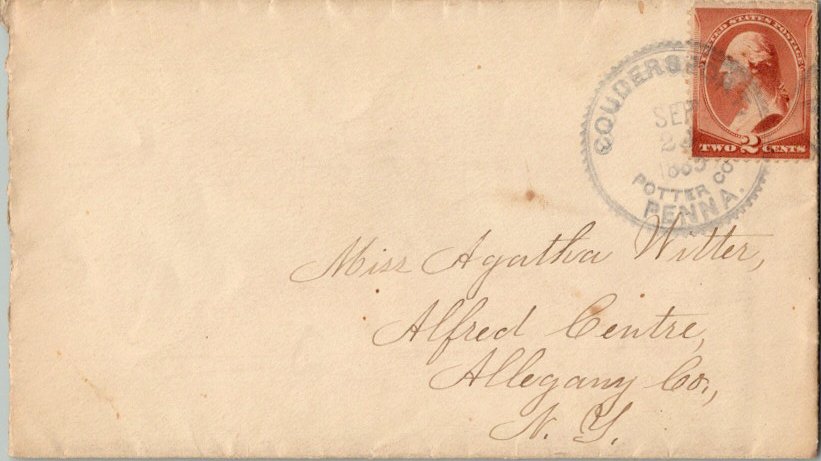 UNITED STATES POSTAGE
TWO 2 CENTS
COUDERS
SEP
24
POTTER CO
PENNA.
Miss Agatha Witter,
Alfred Centre,
Allegany Co.,
N. Y.